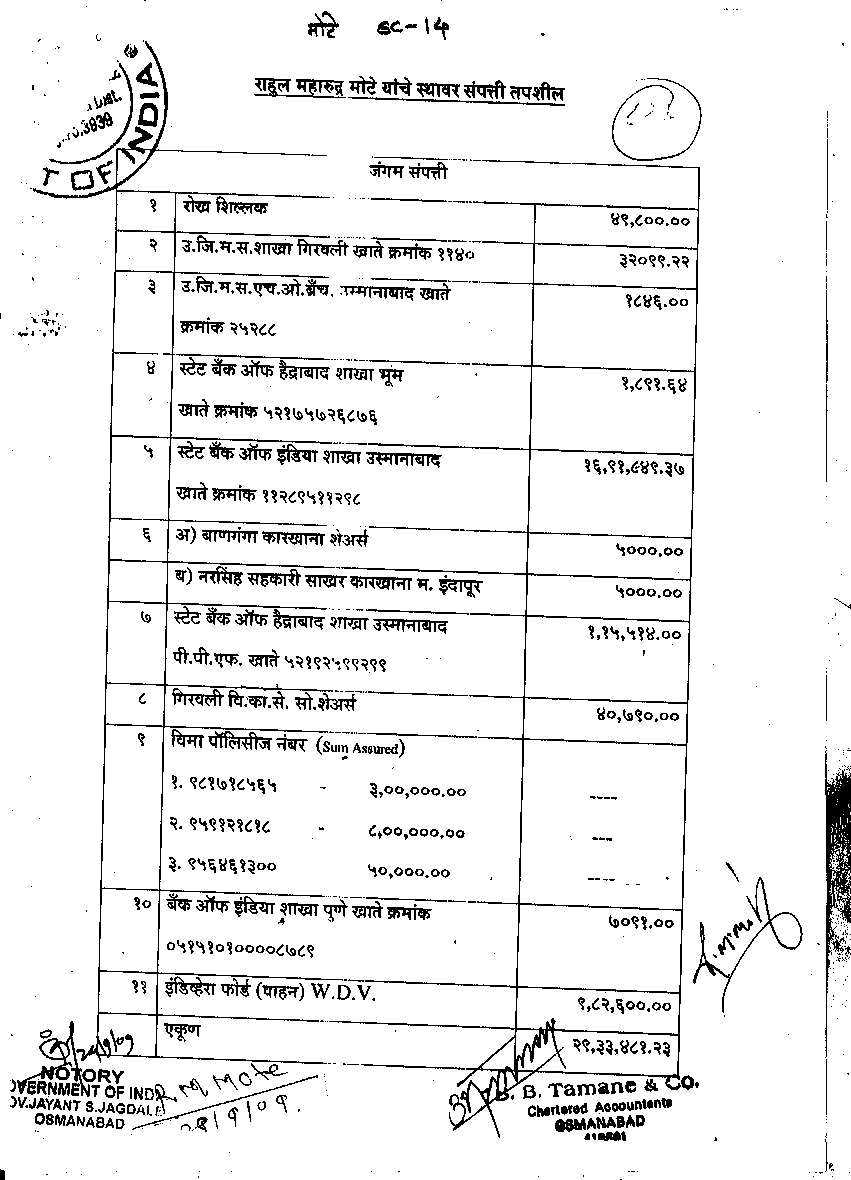 मोटे GC-14
राहुल महारुद्र मोटे यांचे स्थावर संपत्ती तपशील
3939
T OF INDIA
जंगम संपत्ती
१ रोख शिल्लक ४९,८००.००
२ उ.जि.म.स.शाखा गिरवली खाते क्रमांक ११४० ३२०९९.२२
३ उ.जि.म.स.एच.ओ.ब्रँच. उस्मानाबाद खाते १८४६.००
क्रमांक २५२८८
४ स्टेट बँक ऑफ हैद्राबाद शाखा भूम १,८९१.६४
खाते क्रमांक ५२१७५७२६८७६
५ स्टेट बँक ऑफ इंडिया शाखा उस्मानाबाद १६,९१,८४९.३७
खाते क्रमांक ११२८९५११२९८
६ अ) बाणगंगा कारखाना शेअर्स ५०००.००
ब) नरसिंह सहकारी साखर कारखाना म. इंदापूर ५०००.००
७ स्टेट बँक ऑफ हैद्राबाद शाखा उस्मानाबाद १,१५,५१४.००
पी.पी.एफ. खाते ५२१९२५९९२९९
८ गिरवली वि.का.से. सो.शेअर्स ४०,७९०.००
९ विमा पॉलिसीज नंबर (Sum Assured)
१. ९८१७१८५६५ - ३,००,०००.०० ----
२. ९५९१२१८१८ - ८,००,०००.०० ---
३. ९५६४६१३०० ५०,०००.०० ----
१० बँक ऑफ इंडिया शाखा पुणे खाते क्रमांक ७०९१.००
०५१५१०१००००८७८९
११ इंडिव्हेरा फोर्ड (वाहन) W.D.V. ९,८२,६००.००
एकूण २९,३३,४८१.२३
NOTORY
OVERNMENT OF INDI
OV.JAYANT S.JAGDALE
OSMANABAD
R M Mote
28/9/09.
B. B. Tamane & Co.
Chartered Accountants
OSMANABAD